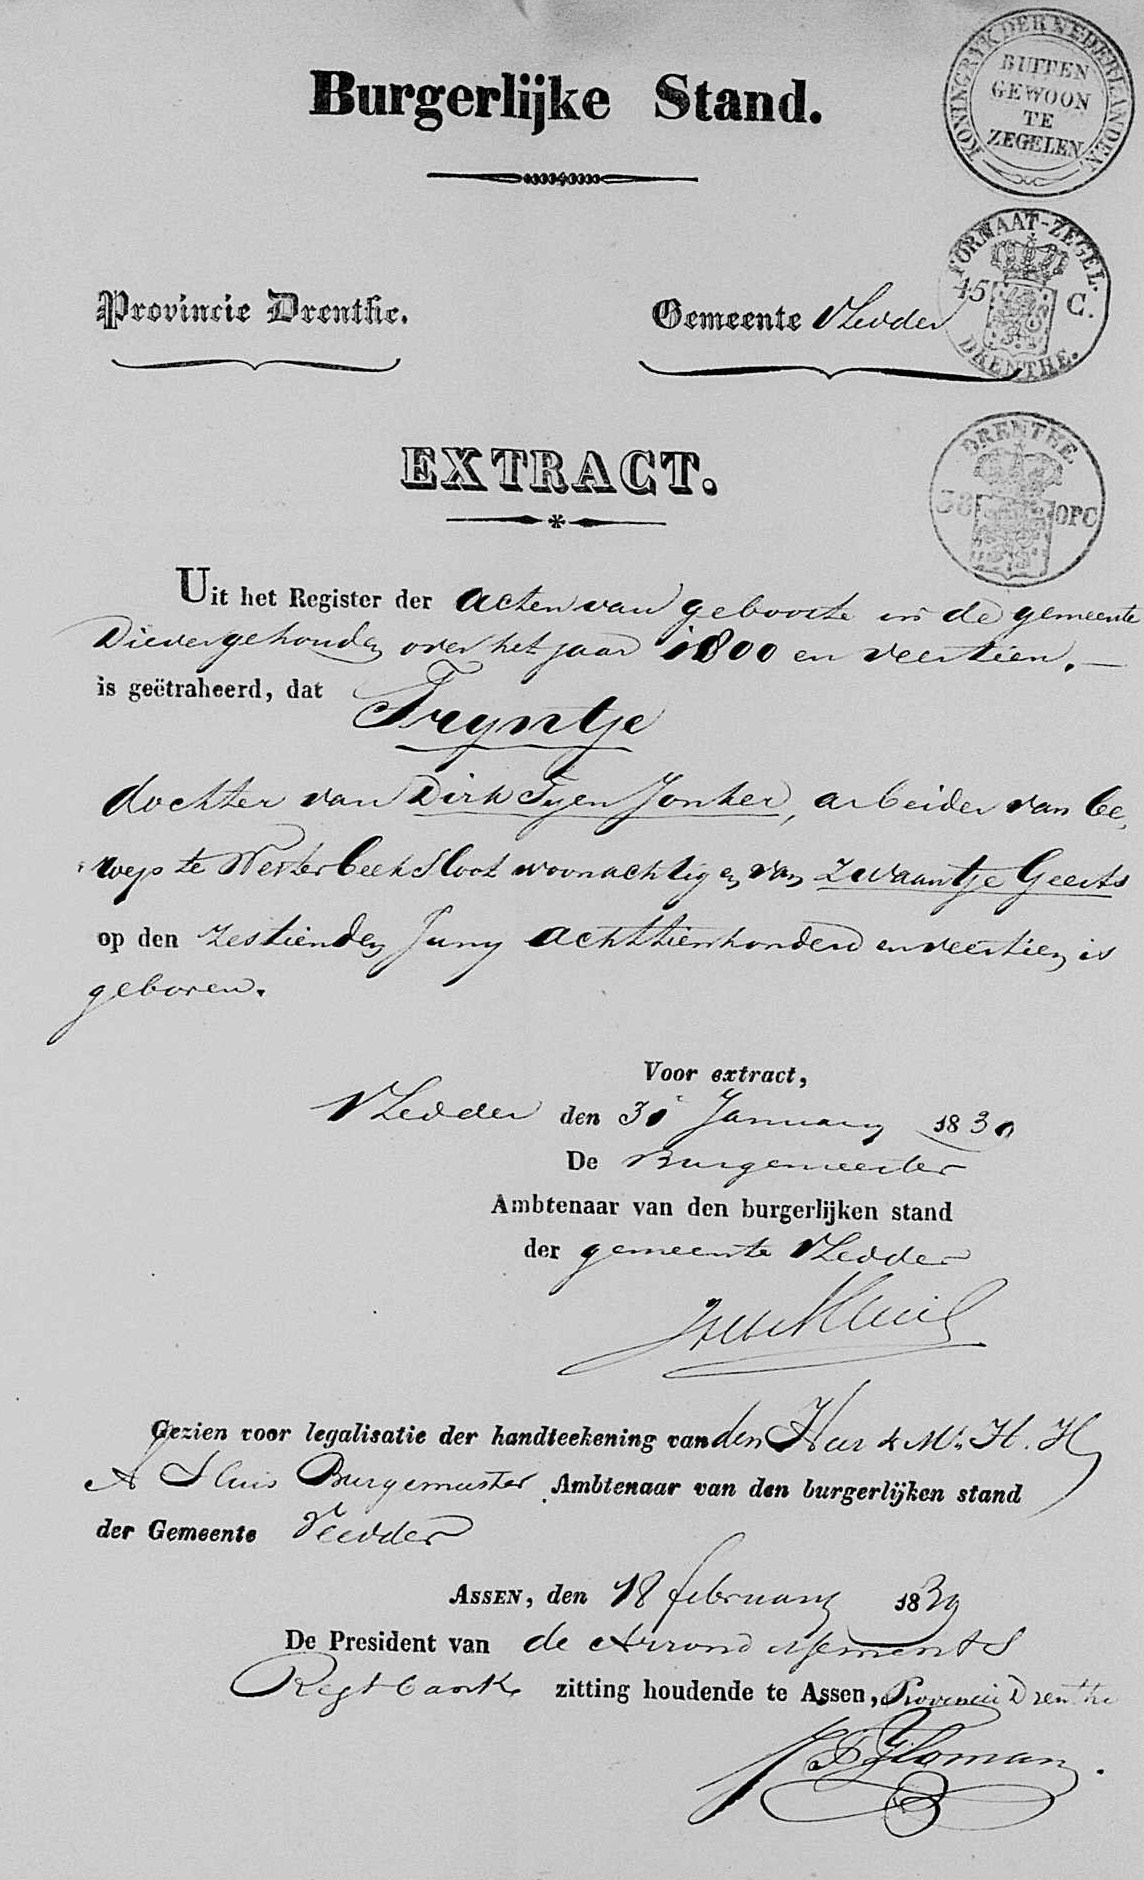 Burgerlijke Stand.
KONINGRYK DER NEDERLANDEN.
BUITEN
GEWOON
TE
ZEGELEN
FORMAAT-ZEGEL.
45 C.
DRENTHE.
Provincie Drenthe. Gemeente Vledder
DRENTHE
38 OPC
EXTRACT.
Uit het Register der acten van geboorte in de gemeente
Diever gehouden over het jaar 1800 en veertien. —
is geëtraheerd, dat Tryntje
dochter van Dirk Tyen Jonker, arbeider van be,
roep te Westerbeeksloot woonachtig en van Zwaantje Geerts
op den zestienden Juny achttienhonderd en veertien is
geboren.
Voor extract,
Vledder den 31 January 1839
De Burgemeester
Ambtenaar van den burgerlijken stand
der gemeente Vledder
Gezien voor legalisatie der handteekening van den Heer Mr. H. H.
A Sluis Burgemeester Ambtenaar van den burgerlijken stand
der Gemeente Vledder
ASSEN, den 18 february 1839
De President van de Arrondissements
Regtbank zitting houdende te Assen, Provincie Drenthe